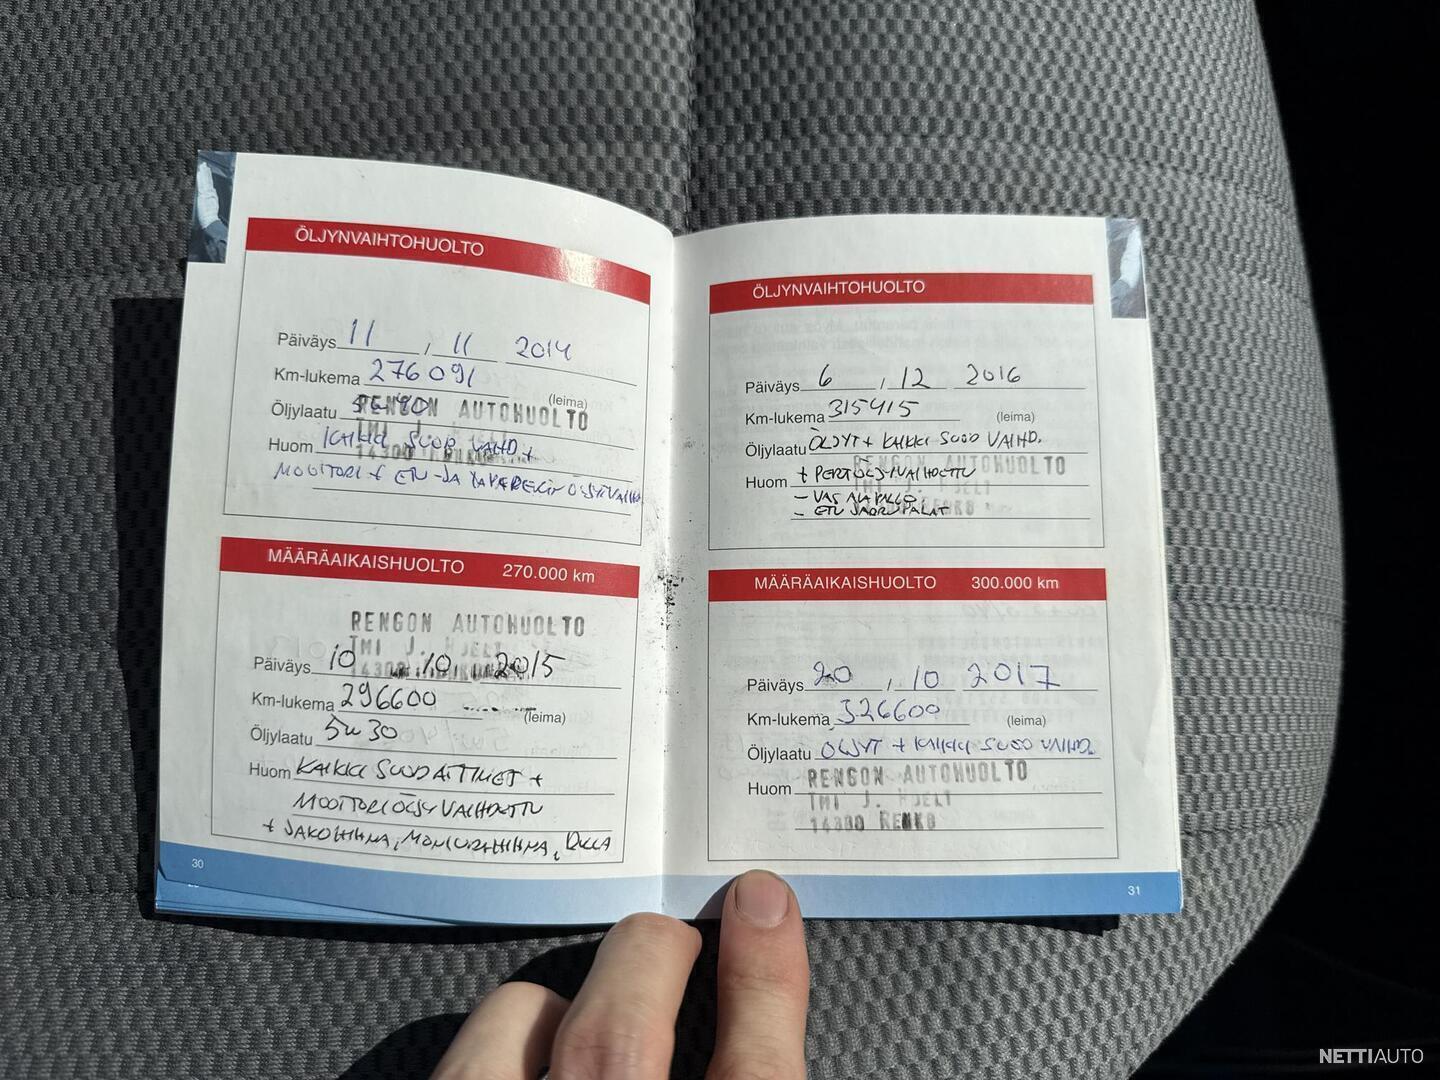 ÖLJYNVAIHTOHUOLTO
Päiväys 11 , 11 2014
Km-lukema 276091
(leima)
RENGON AUTOHUOLTO
TMI J.
Öljylaatu
Huom KAIKKI SUOD VAIHD. +
MOOTTORI + ETU-JA TAKAPERÄN ÖLJYT VAIHD
MÄÄRÄAIKAISHUOLTO 270.000 km
RENGON AUTOHUOLTO
TMI J. HJELT
Päiväys 10 , 10 2015
Km-lukema 296600
(leima)
Öljylaatu 5W30
Huom KAIKKI SUODATTIMET +
MOOTTORIÖLJY VAIHDETTU
+ JAKOHIHNA, MONIURAHIHNA,
30
ÖLJYNVAIHTOHUOLTO
Päiväys 6 , 12 2016
Km-lukema 315415
(leima)
Öljylaatu ÖLJYT + KAIKKI SUOD VAIHD.
RENGON AUTOHUOLTO
TMI J. HJELT
RENKO
Huom + PERÄÖLJY VAIHDETTU
- VAS ALAPALLO
- ETU JARRUPALAT
MÄÄRÄAIKAISHUOLTO 300.000 km
Päiväys 20 , 10 2017
Km-lukema 326600
(leima)
Öljylaatu ÖLJYT + KAIKKI SUOD VAIHD.
RENGON AUTOHUOLTO
Huom TMI J. HJELT
14300 RENKO
31
NETTIAUTO